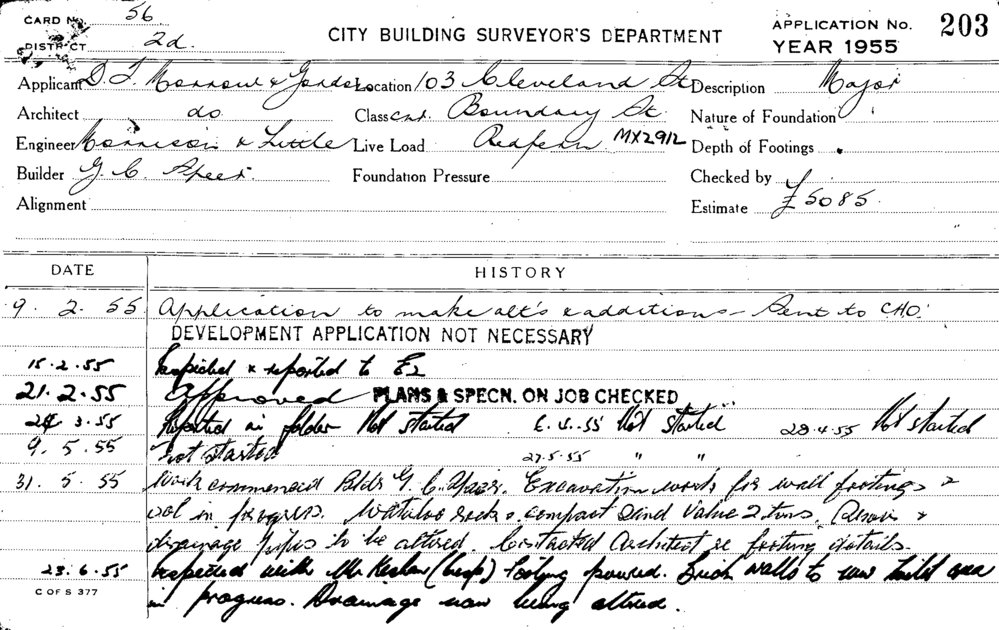 CARD No. 56
DISTRICT 2d.
CITY BUILDING SURVEYOR'S DEPARTMENT
APPLICATION No. 203
YEAR 1955
Applicant D. T. Morrow & Gordon Location 103 Cleveland St Description Major
Architect do Class cnr. Boundary St. Nature of Foundation
Engineer Morrison & Little Live Load Redfern MX2912 Depth of Footings
Builder G. C. Foundation Pressure Checked by
Alignment Estimate £5085
DATE HISTORY
9. 2. 55 Application to make alt's & additions - Sent to CHO.
DEVELOPMENT APPLICATION NOT NECESSARY
15.2.55 Inspected & reported to E2
21.2.55 Approved PLANS & SPECN. ON JOB CHECKED
3.55 Reported in folder Not started 6.4.55 Not started 28.4.55 Not started
9. 5. 55 Not started 27.5.55 " "
31. 5. 55 Work commenced Bldr G. C. Excavation work for wall footings &
in progress. compact sand value 2 tns. &
drainage pipes to be altered. Contacted Architect re footing details.
23.6.55 Inspected with Mr (insp) footing poured. Brick walls to new area
in progress. Drainage now being altered.
C OF S 377